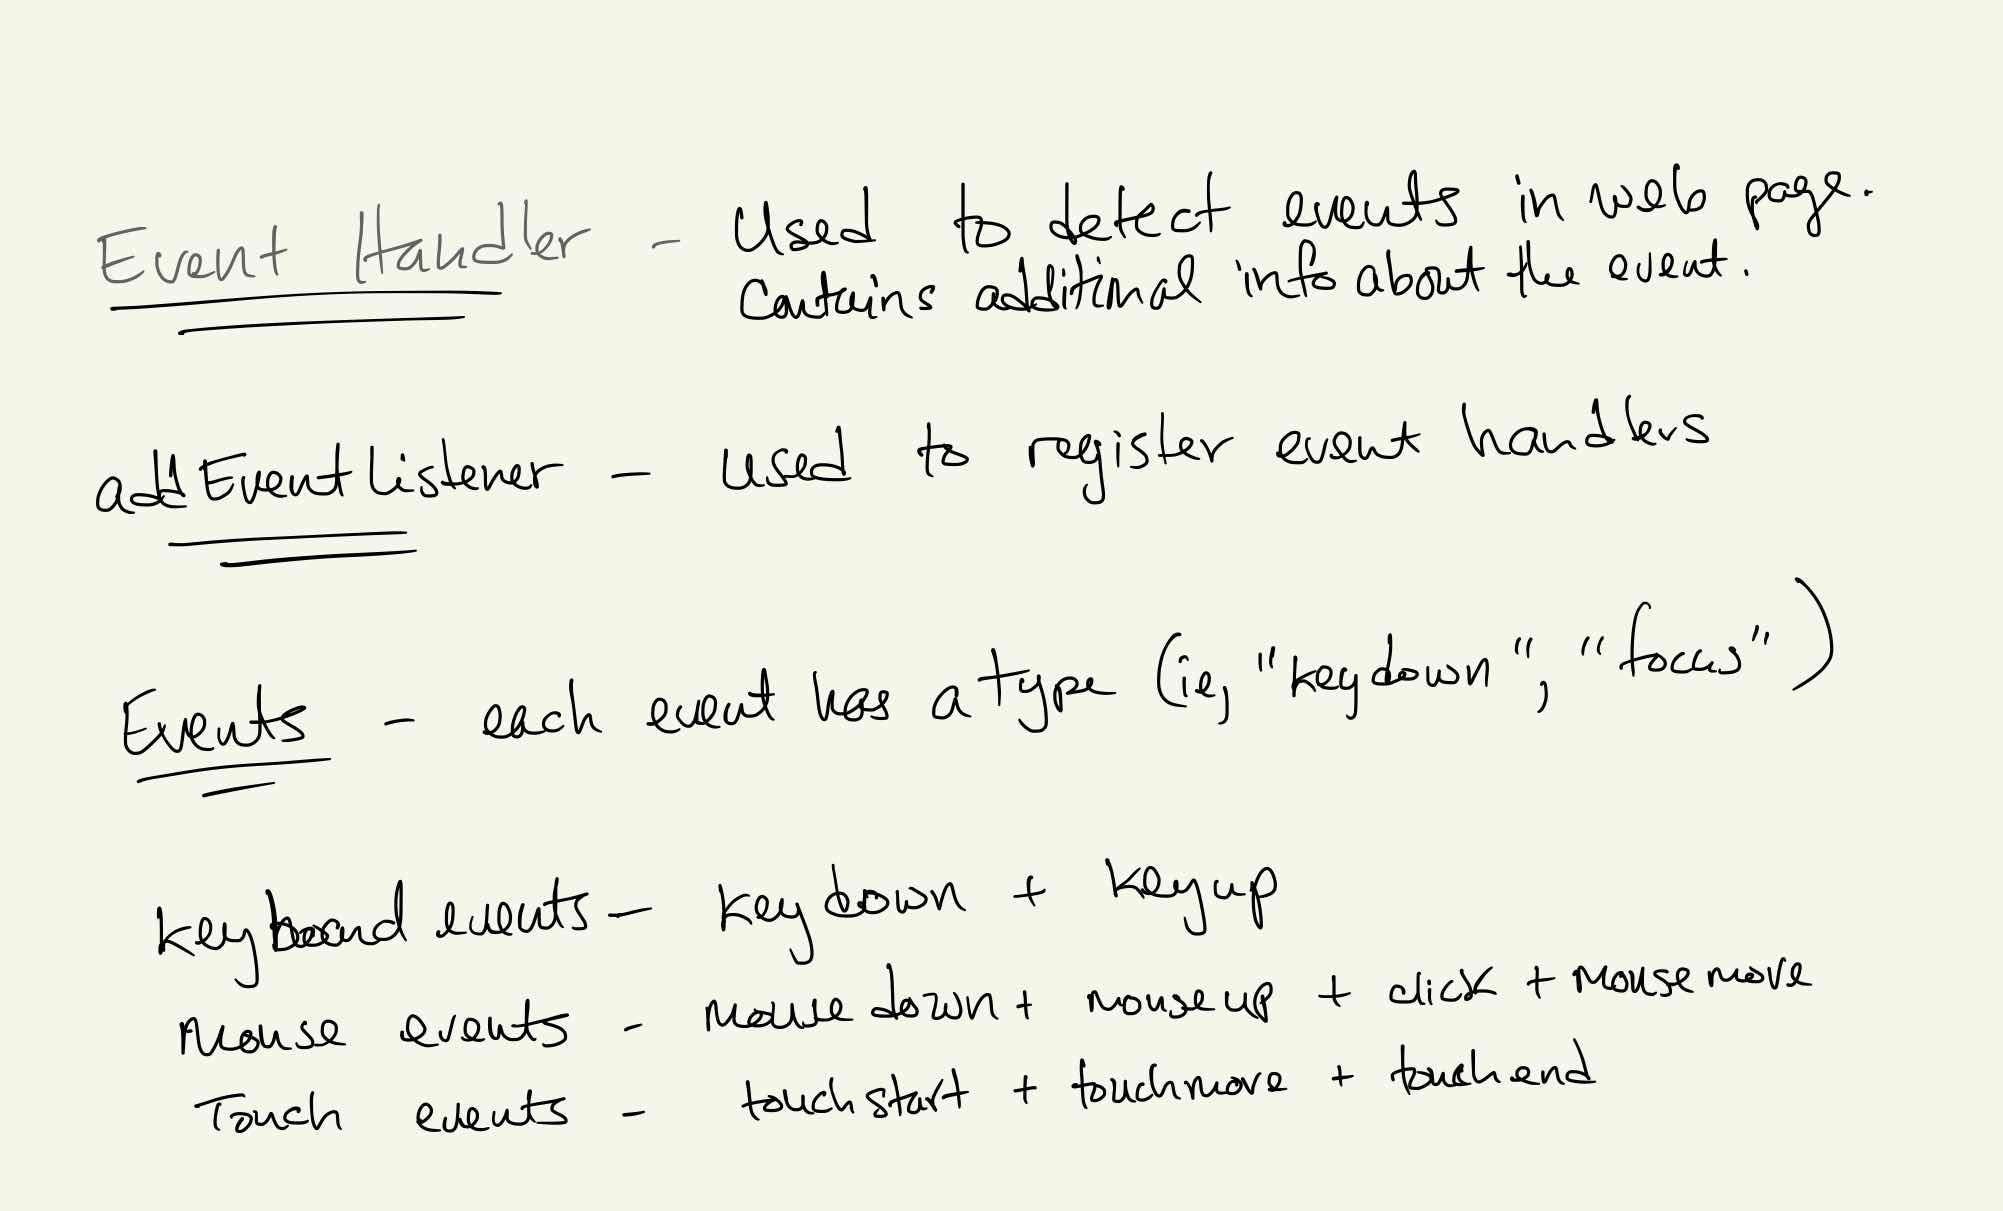 Event Handler - Used to detect events in web page.
Contains additional info about the event.
addEventListener - used to register event handlers
Events - each event has a type (ie, "keydown", "focus")
keyboard events - keydown + keyup
Mouse events - mousedown + mouseup + click + mousemove
Touch events - touchstart + touchmove + touchend